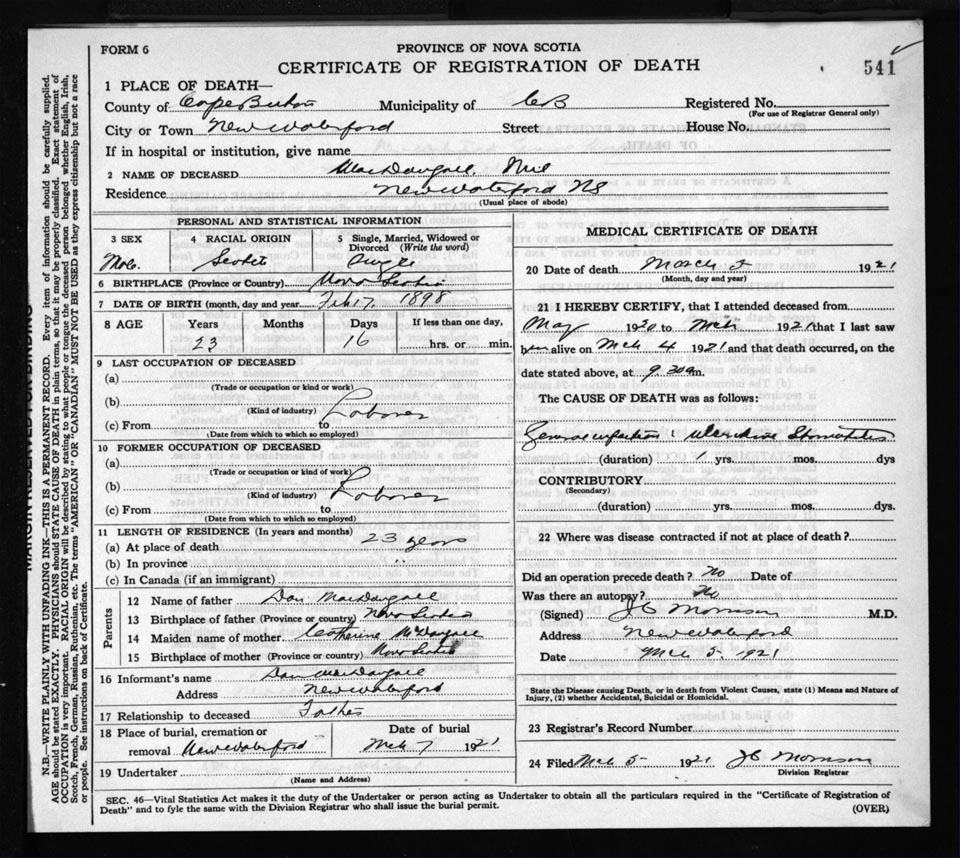 FORM 6
PROVINCE OF NOVA SCOTIA
CERTIFICATE OF REGISTRATION OF DEATH
541
1 PLACE OF DEATH—
County of Cape Breton Municipality of CB Registered No.
(For use of Registrar General only)
City or Town New Waterford Street House No.
If in hospital or institution, give name
2 NAME OF DECEASED MacDougall, Neil
Residence New Waterford NS
(Usual place of abode)
PERSONAL AND STATISTICAL INFORMATION
3 SEX 4 RACIAL ORIGIN 5 Single, Married, Widowed or Divorced (Write the word)
Male Scotch Single
6 BIRTHPLACE (Province or Country) Nova Scotia
7 DATE OF BIRTH (month, day and year) Feb 17, 1898
8 AGE Years Months Days If less than one day,
23 16 hrs. or min.
9 LAST OCCUPATION OF DECEASED
(a)
(Trade or occupation or kind or work)
(b) Laborer
(Kind of industry)
(c) From to
(Date from which to which so employed)
10 FORMER OCCUPATION OF DECEASED
(a)
(Trade or occupation or kind or work)
(b) Laborer
(Kind of industry)
(c) From to
(Date from which to which so employed)
11 LENGTH OF RESIDENCE (In years and months)
(a) At place of death 23 years
(b) In province "
(c) In Canada (if an immigrant)
Parents
12 Name of father Dan MacDougall
13 Birthplace of father (Province or country) Nova Scotia
14 Maiden name of mother Catherine McDougall
15 Birthplace of mother (Province or country) Nova Scotia
16 Informant's name Dan MacDougall
Address New Waterford
17 Relationship to deceased Father
18 Place of burial, cremation or Date of burial
removal New Waterford Mch 7 1921
19 Undertaker
(Name and Address)
MEDICAL CERTIFICATE OF DEATH
20 Date of death March 5 1921
(Month, day and year)
21 I HEREBY CERTIFY, that I attended deceased from
May 1920 to Mch 1921 that I last saw
him alive on Mch 4 1921 and that death occurred, on the
date stated above, at 9.30 a m.
The CAUSE OF DEATH was as follows:
Stomatitis
(duration) 1 yrs. mos. dys
CONTRIBUTORY
(Secondary)
(duration) yrs. mos. dys.
22 Where was disease contracted if not at place of death?
Did an operation precede death? No Date of
Was there an autopsy? No
(Signed) J C Morrison M.D.
Address New Waterford
Date Mch 5 1921
State the Disease causing Death, or in death from Violent Causes, state (1) Means and Nature of
Injury, (2) whether Accidental, Suicidal or Homicidal.
23 Registrar's Record Number
24 Filed Mch 5 1921 J C Morrison
Division Registrar
SEC. 46—Vital Statistics Act makes it the duty of the Undertaker or person acting as Undertaker to obtain all the particulars required in the "Certificate of Registration of
Death" and to fyle the same with the Division Registrar who shall issue the burial permit. (OVER)
MARGIN RESERVED FOR BINDING
N.B.—WRITE PLAINLY WITH UNFADING INK—THIS IS A PERMANENT RECORD. Every item of information should be carefully supplied.
AGE should be stated EXACTLY. PHYSICIANS should STATE CAUSE OF DEATH in plain terms, so that it may be properly classified. Exact statement of
OCCUPATION is very important. RACIAL ORIGIN will be described by stating to what people or tongue the deceased person belonged whether English, Irish,
Scotch, French, German, Russian, Ruthenian, etc. The terms "AMERICAN" OR "CANADIAN" MUST NOT BE USED as they express citizenship but not a race
or people. See instructions on back of Certificate.